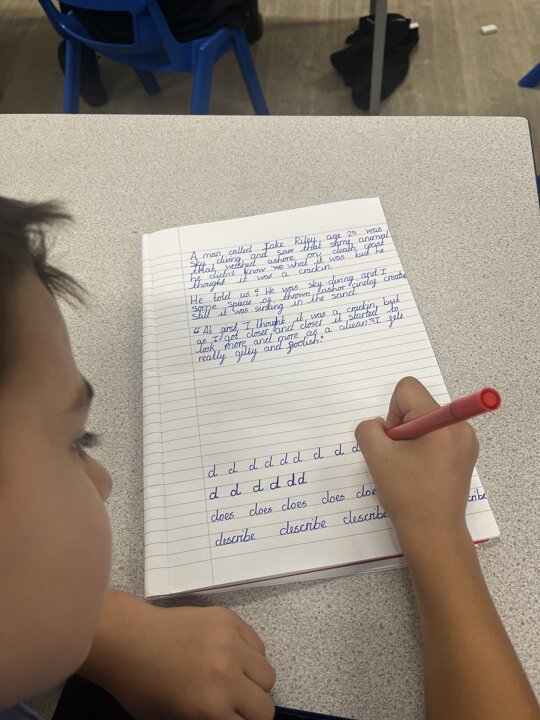 A man called Jake Riley age 25 was
sky diving and saw that some animal
that washed ashore on death coast
he didn't know wo what it was but he
thought it was a crackin.
He told us "He was sky diving and I
some spiece of thrown ashor
still it was sinking in the sand.
"At first I thought it was a crackin, but
as I got closer and closer it started to
look more and more as a aliean" "I felt
really gilty and foolish."
d d d d d d d d d
d d d d d d
does does does does doe
describe describe describe
cribe